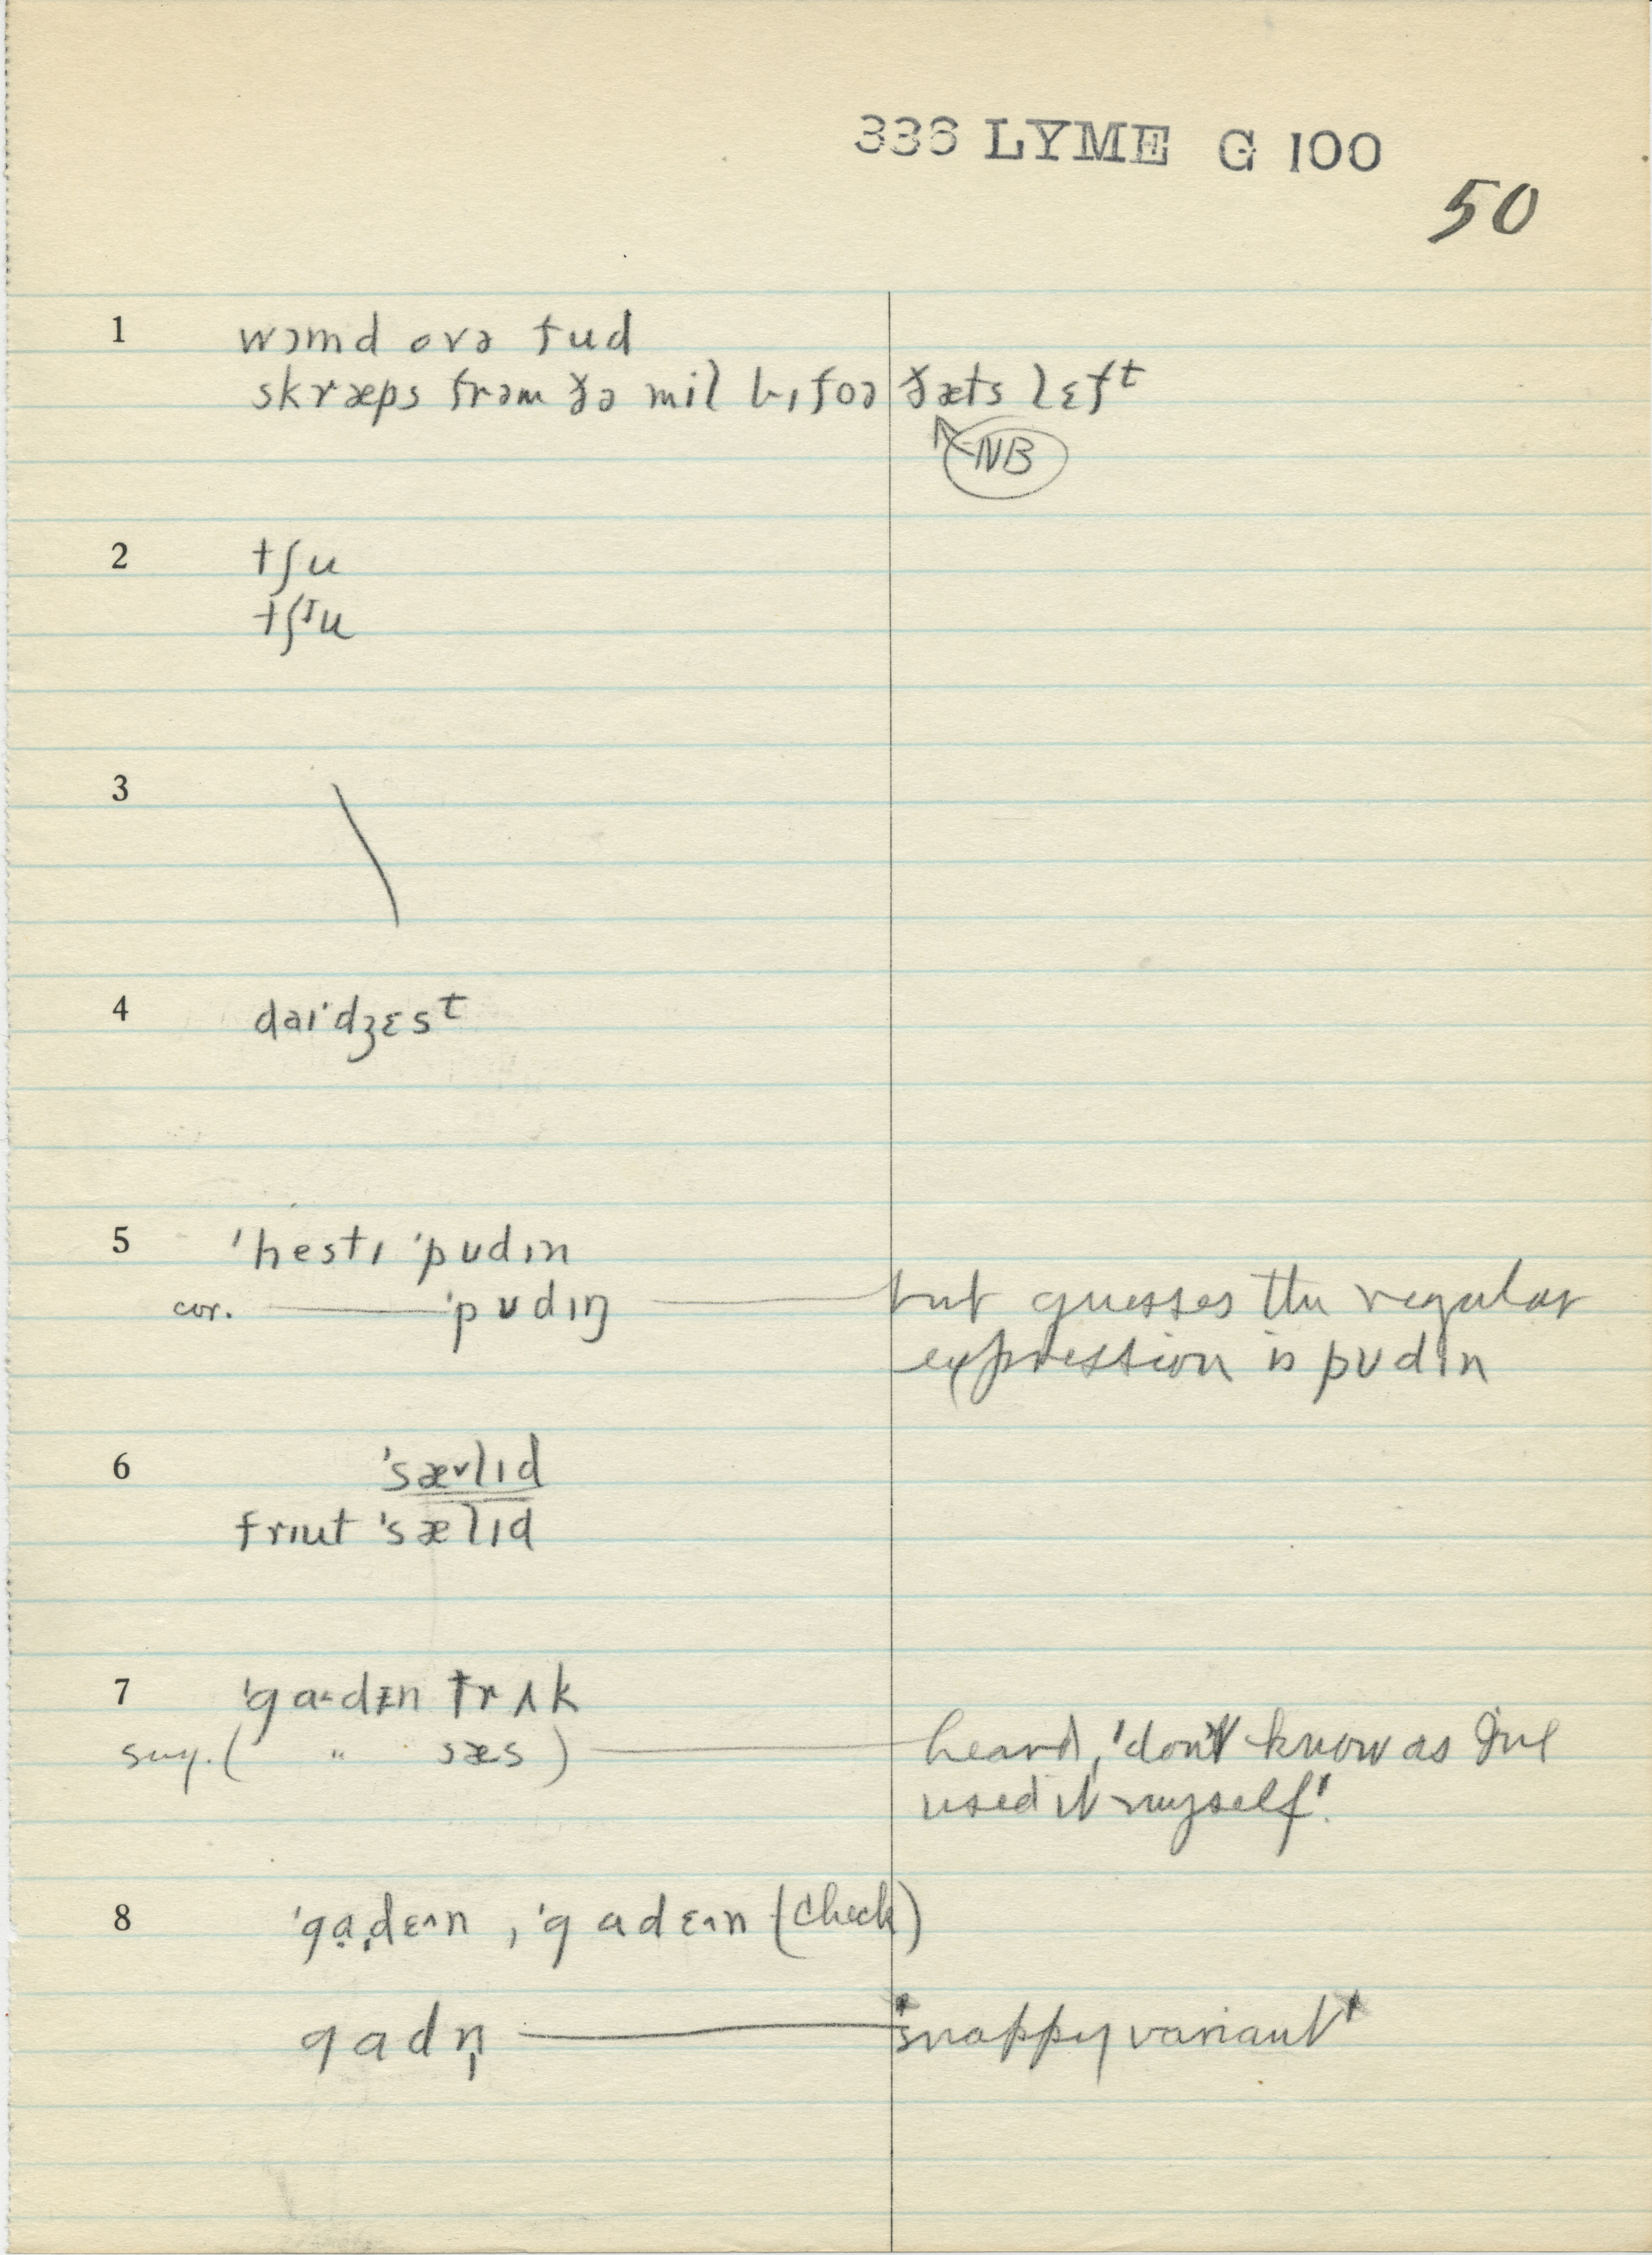 336 LYME G 100
50
1 wɔmd ovə fud
skræps frəm ðə mil bɪfoə ðæts lɛfᵗ
NB
2 tʃu
tʃᴵu
3
4 daɪ'dʒɛsᵗ
5 'hestɪ 'pʊdɪn
cor. ——— 'pʊdɪŋ ——— but guesses the regular
expression is pʊdɪn
6 'sæ˅lɪd
frɪut 'sælɪd
7 'ga·dɪn trʌk
sug. ( " sæs ) ——— heard, 'don't know as I've
used it myself'.
8 'gạ.dɛ^n , 'gadɛ^n (check)
gadn̩ ——— 'snappy variant'